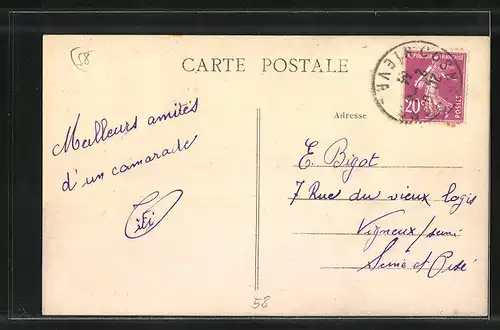 58
CARTE POSTALE
REPUBLIQUE FRANÇAISE
20c
POSTES
COSNE
NIEVRE
Adresse
Meilleurs amitiés
d'un camarade
Titi
E. Bigot
7 Rue du vieux logis
Vigneux/seine
Seine et Oise
58